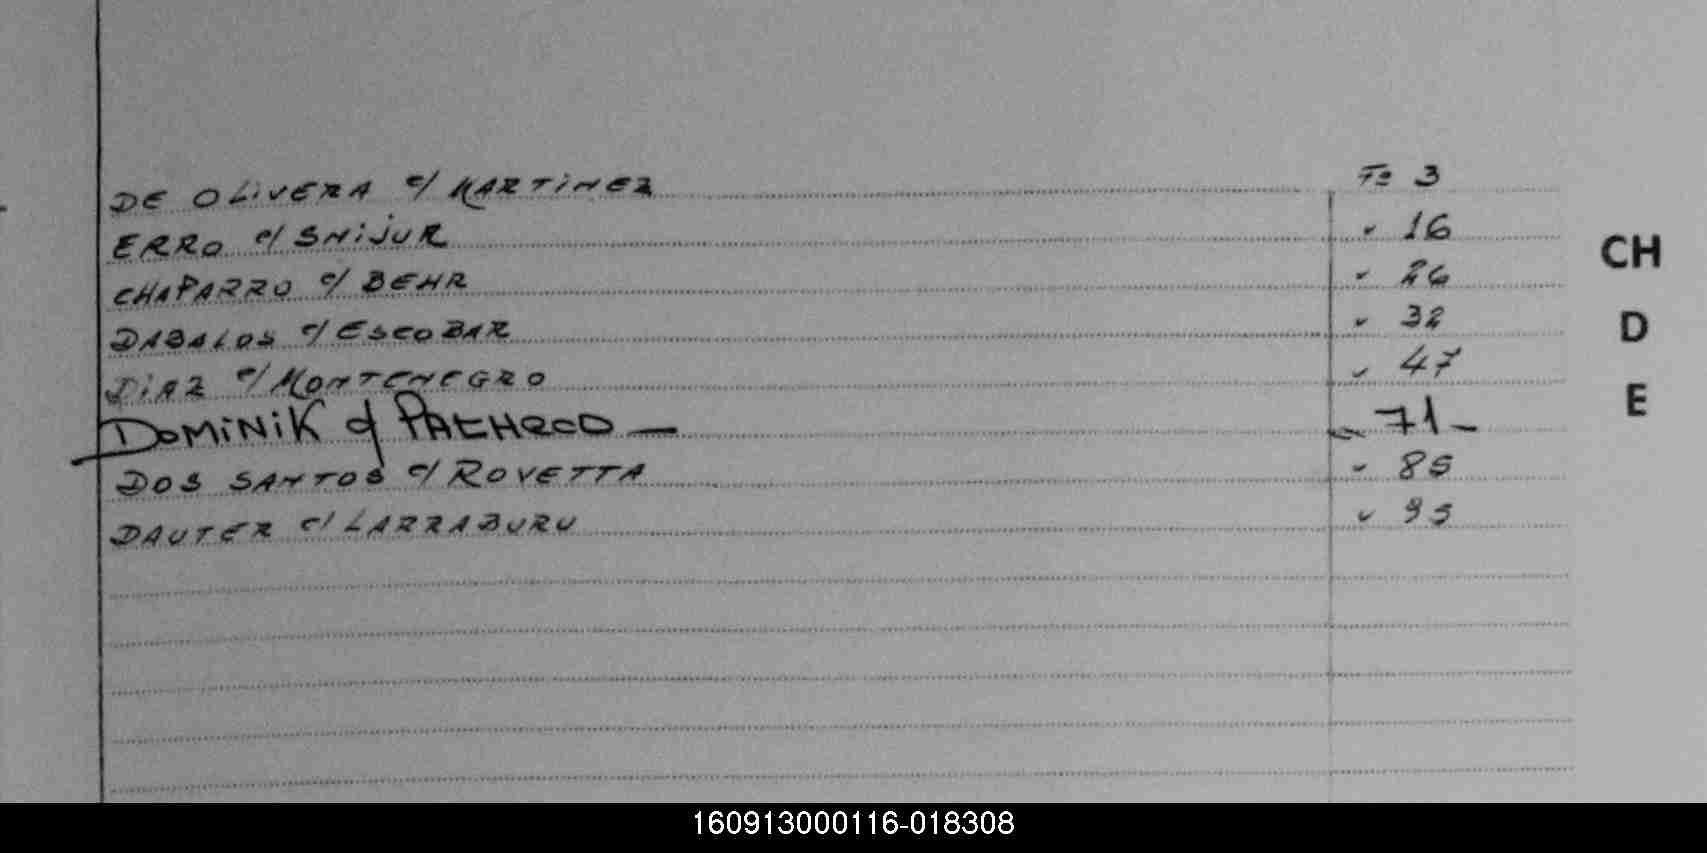 DE OLIVERA c/ MARTINEZ Fº 3
ERRO c/ SNIJUR " 16
CHAPARRO c/ BEHR " 26
DABALOS c/ ESCOBAR " 32
DIAZ c/ MONTENEGRO " 47
DOMINIK c/ PACHECO — " 71 -
DOS SANTOS c/ ROVETTA " 85
DAUTER c/ LARRABURU " 95
CH
D
E
160913000116-018308